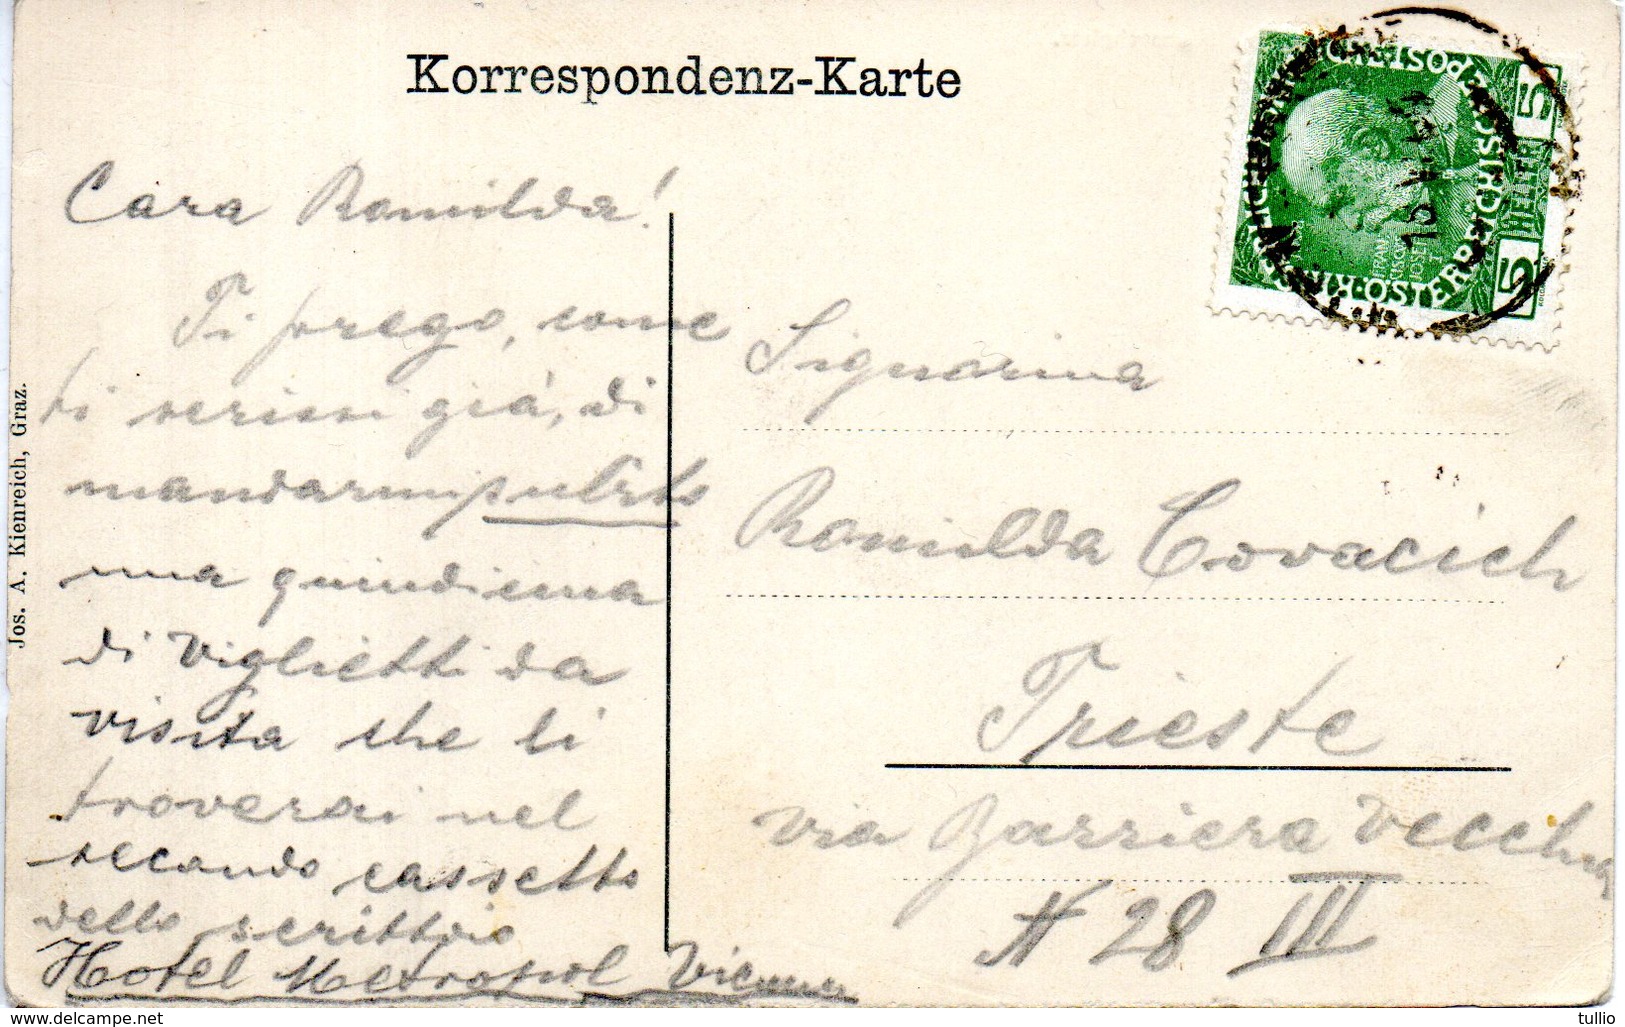 Korrespondenz-Karte
Cara Romilda!
Ti prego, come
ti scrissi già, di
mandarmi subito
una quindicina
di viglietti da
visita che li
troverai nel
secondo cassetto
dello scrittoio
Hotel Metropol Vienna
Signorina
Romilda Covacich
Trieste
via Barriera Vecchia
N 28 III
Jos. A. Kienreich, Graz.
5 HELLER 5
www.delcampe.net
tullio